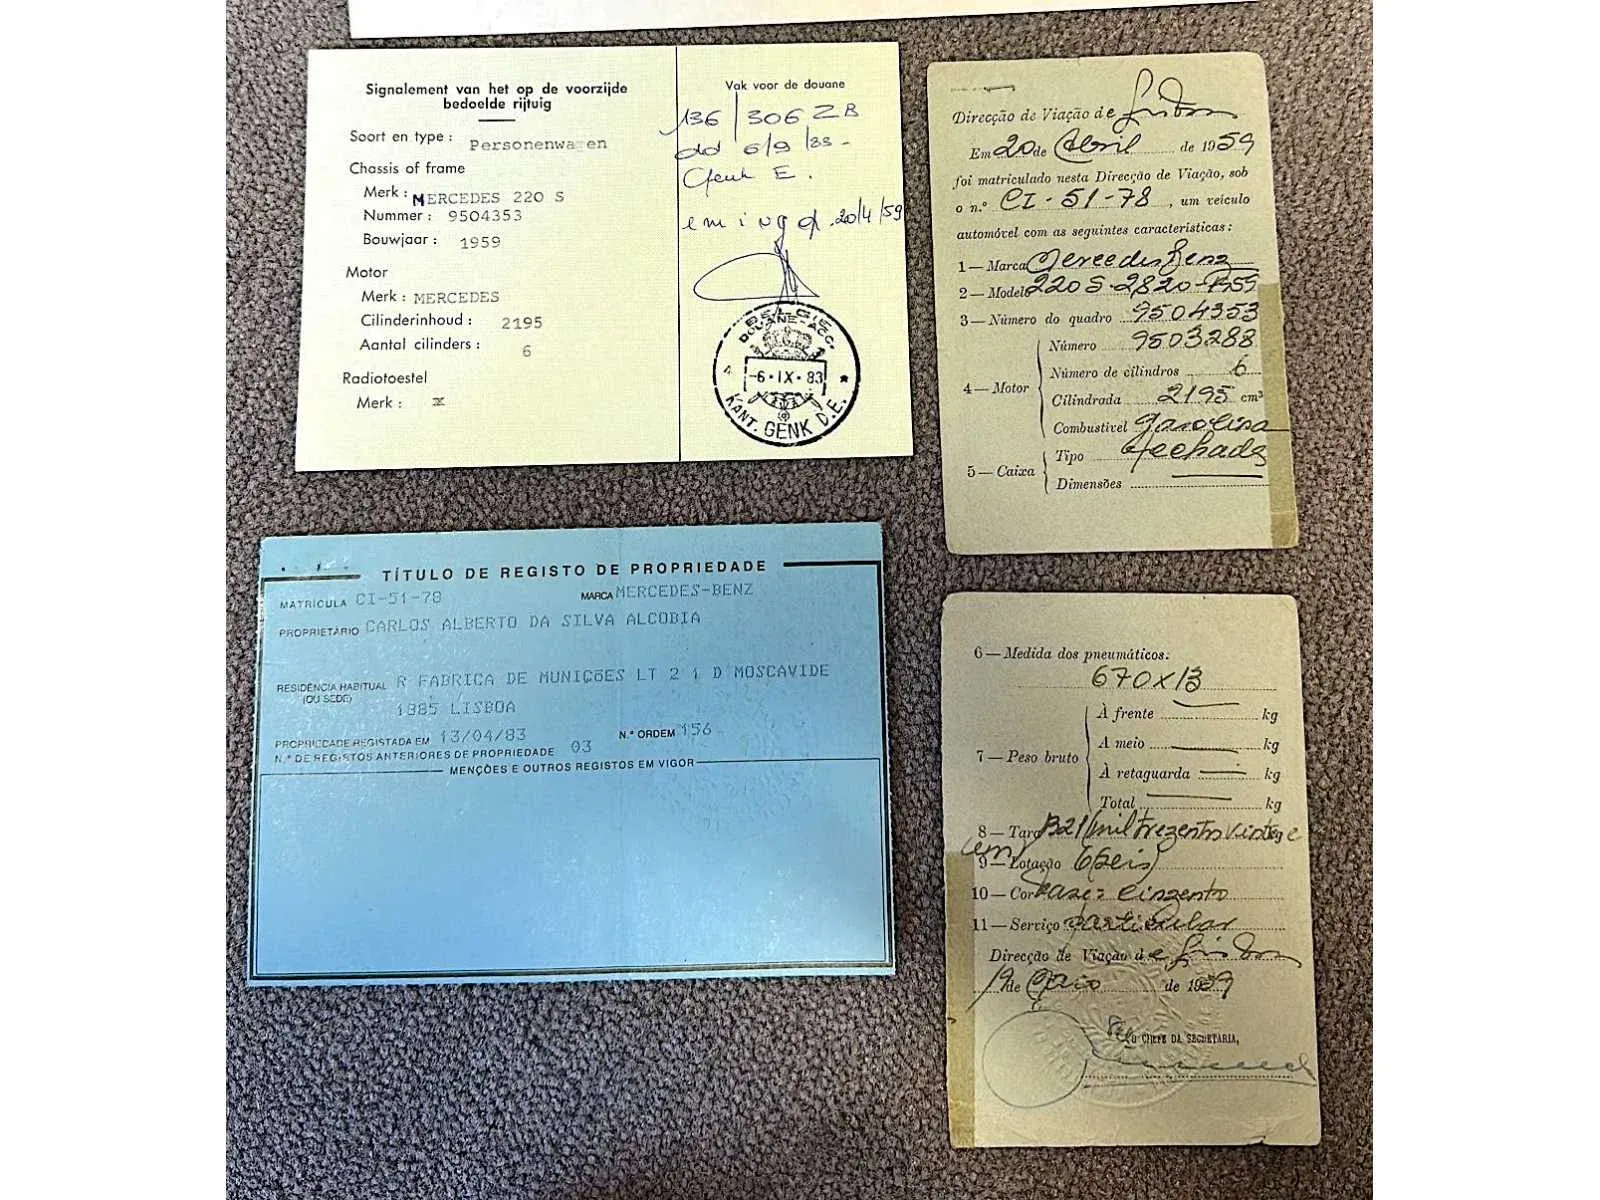 Signalement van het op de voorzijde
bedoelde rijtuig
Soort en type : Personenwa en
Chassis of frame
Merk : MERCEDES 220 S
Nummer : 9504353
Bouwjaar : 1959
Motor
Merk : MERCEDES
Cilinderinhoud : 2195
Aantal cilinders : 6
Radiotoestel
Merk : X
Vak voor de douane
136/306 ZB
dd 6/9/83 -
Genk E.
20/4/59
BELGIE
DOUANE-ACC.
4 -6·IX·83 *
KANT. GENK D.E.
TÍTULO DE REGISTO DE PROPRIEDADE
MATRÍCULA CI-51-78 MARCA MERCEDES-BENZ
PROPRIETÁRIO CARLOS ALBERTO DA SILVA ALCOBIA
RESIDÊNCIA HABITUAL R FABRICA DE MUNIÇÕES LT 2 1 D MOSCAVIDE
(OU SEDE)
1885 LISBOA
PROPRIEDADE REGISTADA EM 13/04/83 N.º ORDEM 156
N.º DE REGISTOS ANTERIORES DE PROPRIEDADE 03
MENÇÕES E OUTROS REGISTOS EM VIGOR
Direcção de Viação de Lisboa
Em 20 de Abril de 1959
foi matriculado nesta Direcção de Viação, sob
o n.º CI-51-78, um veículo
automóvel com as seguintes características:
1 — Marca Mercedes Benz
2 — Modelo 220 S-2,820-1959
3 — Número do quadro 9504353
4 — Motor
Número 9503288
Número de cilindros 6
Cilindrada 2195 cm³
Combustível Gasolina
5 — Caixa
Tipo Fechada
Dimensões
6 — Medida dos pneumáticos:
670x13
7 — Peso bruto
À frente kg
A meio kg
À retaguarda kg
Total kg
8 — Tara 1321 (mil trezentos vinte e
um)
9 — Lotação 6 (seis)
10 — Cor base: cinzento
11 — Serviço particular
Direcção de Viação de Lisboa
19 de Maio de 1959
O CHEFE DA SECRETARIA,